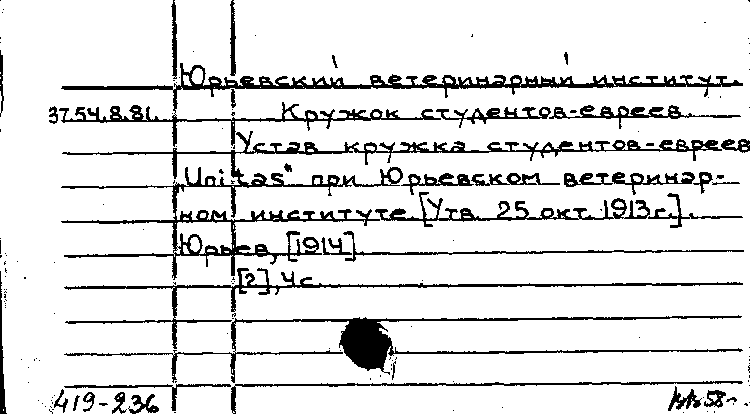 Юрьевский ветеринарный институт.
37.54.8.81. Кружок студентов-евреев.
Устав кружка студентов-евреев
„Unitas“ при Юрьевском ветеринар-
ном институте. [Утв. 25 окт. 1913 г.].
Юрьев, [1914]
[2], 4 с.
419-236